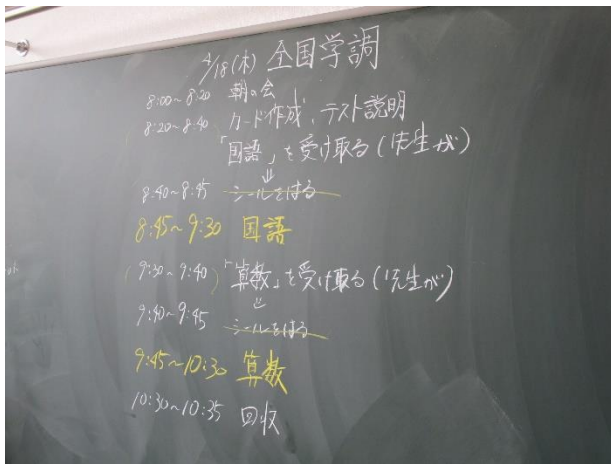 4/18(木) 全国学調
8:00~8:20 朝の会
8:20~8:40 カード作成、テスト説明
「国語」を受け取る(先生が)
↓
8:40~8:45 シールをはる
8:45~9:30 国語
(9:30~9:40)「算数」を受け取る(先生が)
↓
9:40~9:45 シールをはる
9:45~10:30 算数
10:30~10:35 回収